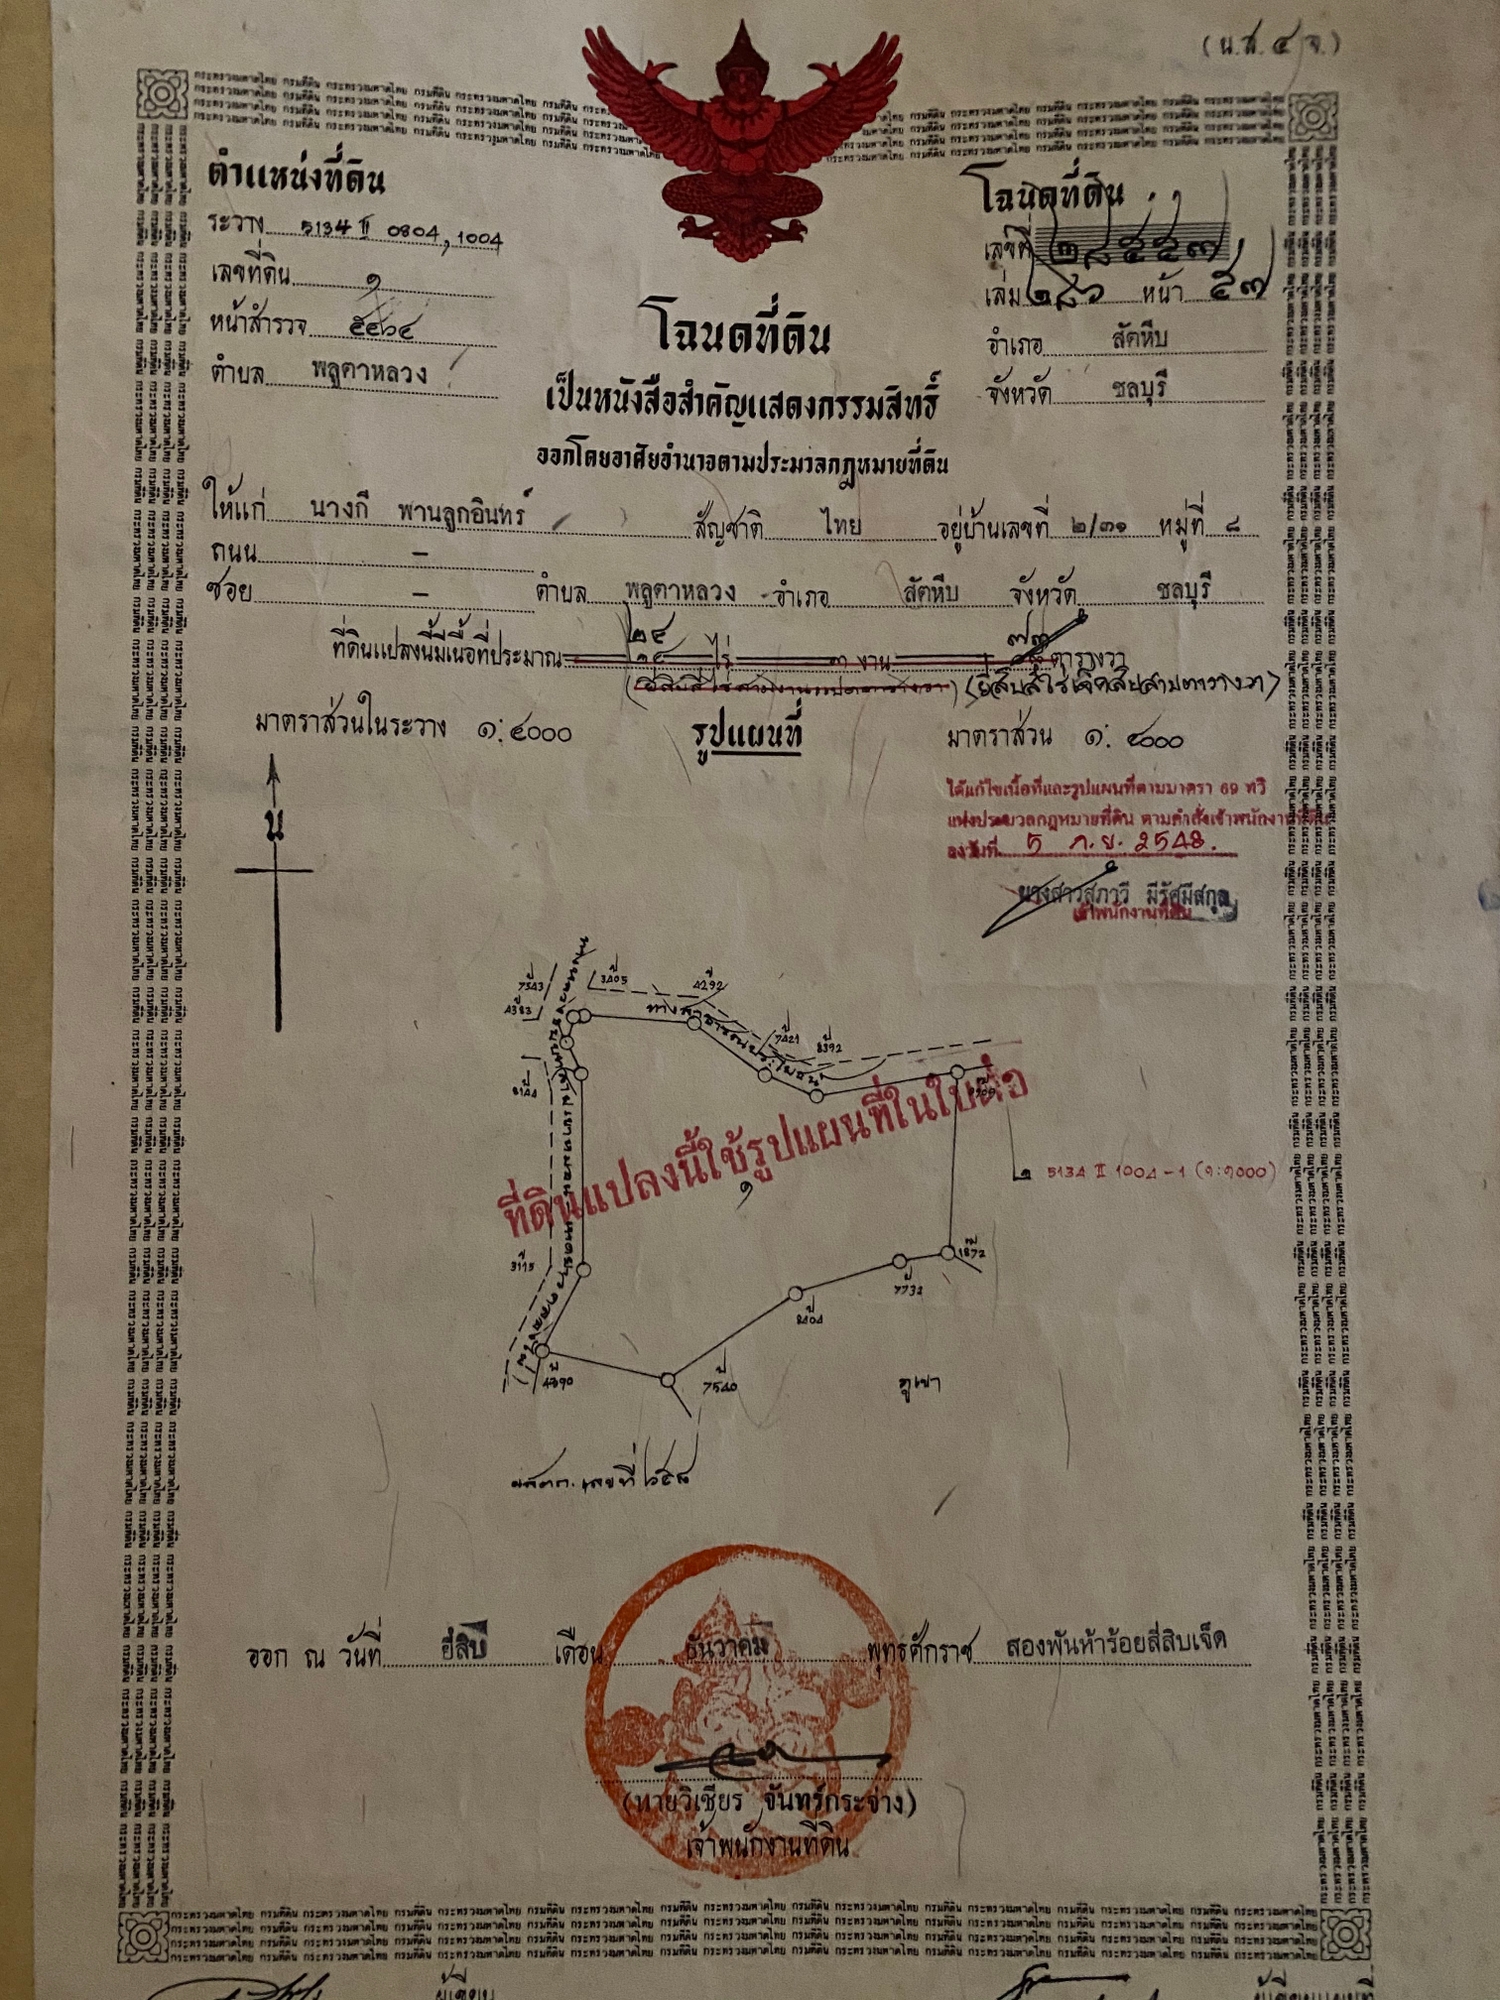 (น.ส. ๔ จ.)
ตำแหน่งที่ดิน
ระวาง 5134 II 0804, 1004
เลขที่ดิน ๑
หน้าสำรวจ ๕๔๖๔
ตำบล พลูตาหลวง
โฉนดที่ดิน
เลขที่ ๒๘๕๕๗
เล่ม ๒๘๖ หน้า ๕๗
อำเภอ สัตหีบ
จังหวัด ชลบุรี
โฉนดที่ดิน
เป็นหนังสือสำคัญแสดงกรรมสิทธิ์
ออกโดยอาศัยอำนาจตามประมวลกฎหมายที่ดิน
ให้แก่ นางกี พานลูกอินทร์ สัญชาติ ไทย อยู่บ้านเลขที่ ๒/๓๑ หมู่ที่ ๘
ถนน –
ซอย – ตำบล พลูตาหลวง อำเภอ สัตหีบ จังหวัด ชลบุรี
๒๔ ๗๓
ที่ดินแปลงนี้มีเนื้อที่ประมาณ ๒๔ ไร่ ๓ งาน ตารางวา
(ยี่สิบสี่ไร่เจ็ดสิบสามตารางวา)
มาตราส่วนในระวาง ๑:๔๐๐๐ รูปแผนที่ มาตราส่วน ๑:๔๐๐๐
ได้แก้ไขเนื้อที่และรูปแผนที่ตามมาตรา 69 ทวิ
แห่งประมวลกฎหมายที่ดิน ตามคำสั่งเจ้าพนักงานที่ดิน
ลงวันที่ 5 ก.ย. 2548.
นางสาวสุภาวี มีรัศมีสกุล
เจ้าพนักงานที่ดิน
น
ที่ 7543
ที่ 3405
ที่ 4292
ที่ 4383
ทางสาธารณประโยชน์
ที่ 7421
ที่ 8392
ที่ดินแปลงนี้ใช้รูปแผนที่ในใบต่อ
๑
๒ 5134 II 1004-1 (๑:๑๐๐๐)
ที่ 1872
ที่ 7732
ที่ 8404
ที่ 4390
ที่ 7540
ภูเขา
ออก ณ วันที่ ยี่สิบ เดือน ธันวาคม พุทธศักราช สองพันห้าร้อยสี่สิบเจ็ด
(นายวิเชียร จันทร์กระจ่าง)
เจ้าพนักงานที่ดิน
กระทรวงมหาดไทย กรมที่ดิน
ผู้เขียน
ผู้เขียนแผนที่